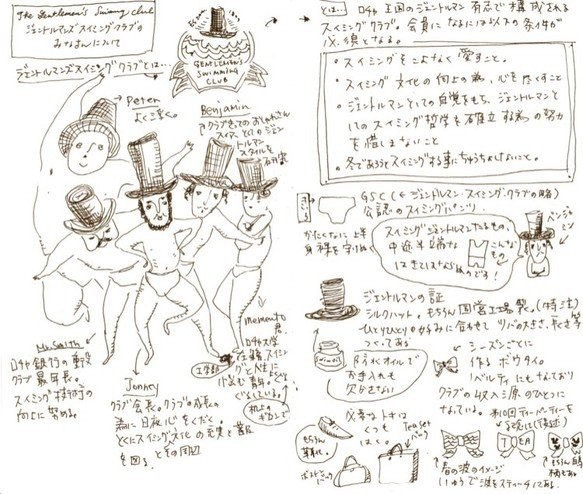 The Gentlemen's Swimming Club
ジェントルマンズスイミングクラブの
みなさんについて
ジェントルマンズスイミングクラブとは…
GENTLEMEN'S
SWIMMING
CLUB
Peter
よく泣く。
Benjamin
クラブきってのおしゃれさん
スイマーとしてのジェン
トルマン
スタイルを
Mr.Smith
ロチャ銀行の重役
クラブ最年長。
スイミング技術の
向上に努める。
Jonney
クラブ会長。クラブの成長の
為に日夜心をくだく。
とくにスイミング文化の充実と普及
を図る
Memento
君。
ロチャ大学
在籍
スイミングと人生に
悩む青年。
とは… ロチャ王国のジェントルマン有志で構成される
スイミングクラブ。会員になるには以下の条件が
必須となる。
・スイミングをこよなく愛すこと。
・スイミング文化の向上の為、心を尽くすこと
・ジェントルマンとしての自覚をもち、ジェントルマンと
してのスイミング哲学を確立する為の努力
を惜しまないこと
・冬であろうとスイミングする事にちゅうちょしないこと。
GSC (←ジェントルマンスイミングクラブの略)
公認のスイミングパンツ
かたくなに上半
身裸を守る
スイミングジェントルマンたるもの、
中途半端な
こんなもの
はきてはならぬのである!
ベンジャ
ミン
ジェントルマンの証
シルクハット。もちろん国営工場製。(特注)
ひとりひとりの好みに合わせてツバの大きさ、長さ等
つくってある
Swimoil
ぼうしオイルで
お手入れも
欠かさない
シーズンごとに
作るボウタイ。
リバティにもなっており
クラブの収入源のひとつに
なっている。
第10回ティーパーティーを
TEA
必要なトキは
くつも
はく。
もちろん
革靴。
Tea Set
バッグ
春の波のイメージ
いゅうで波をスティッチしてある。
もちろん白鳥
柄もある